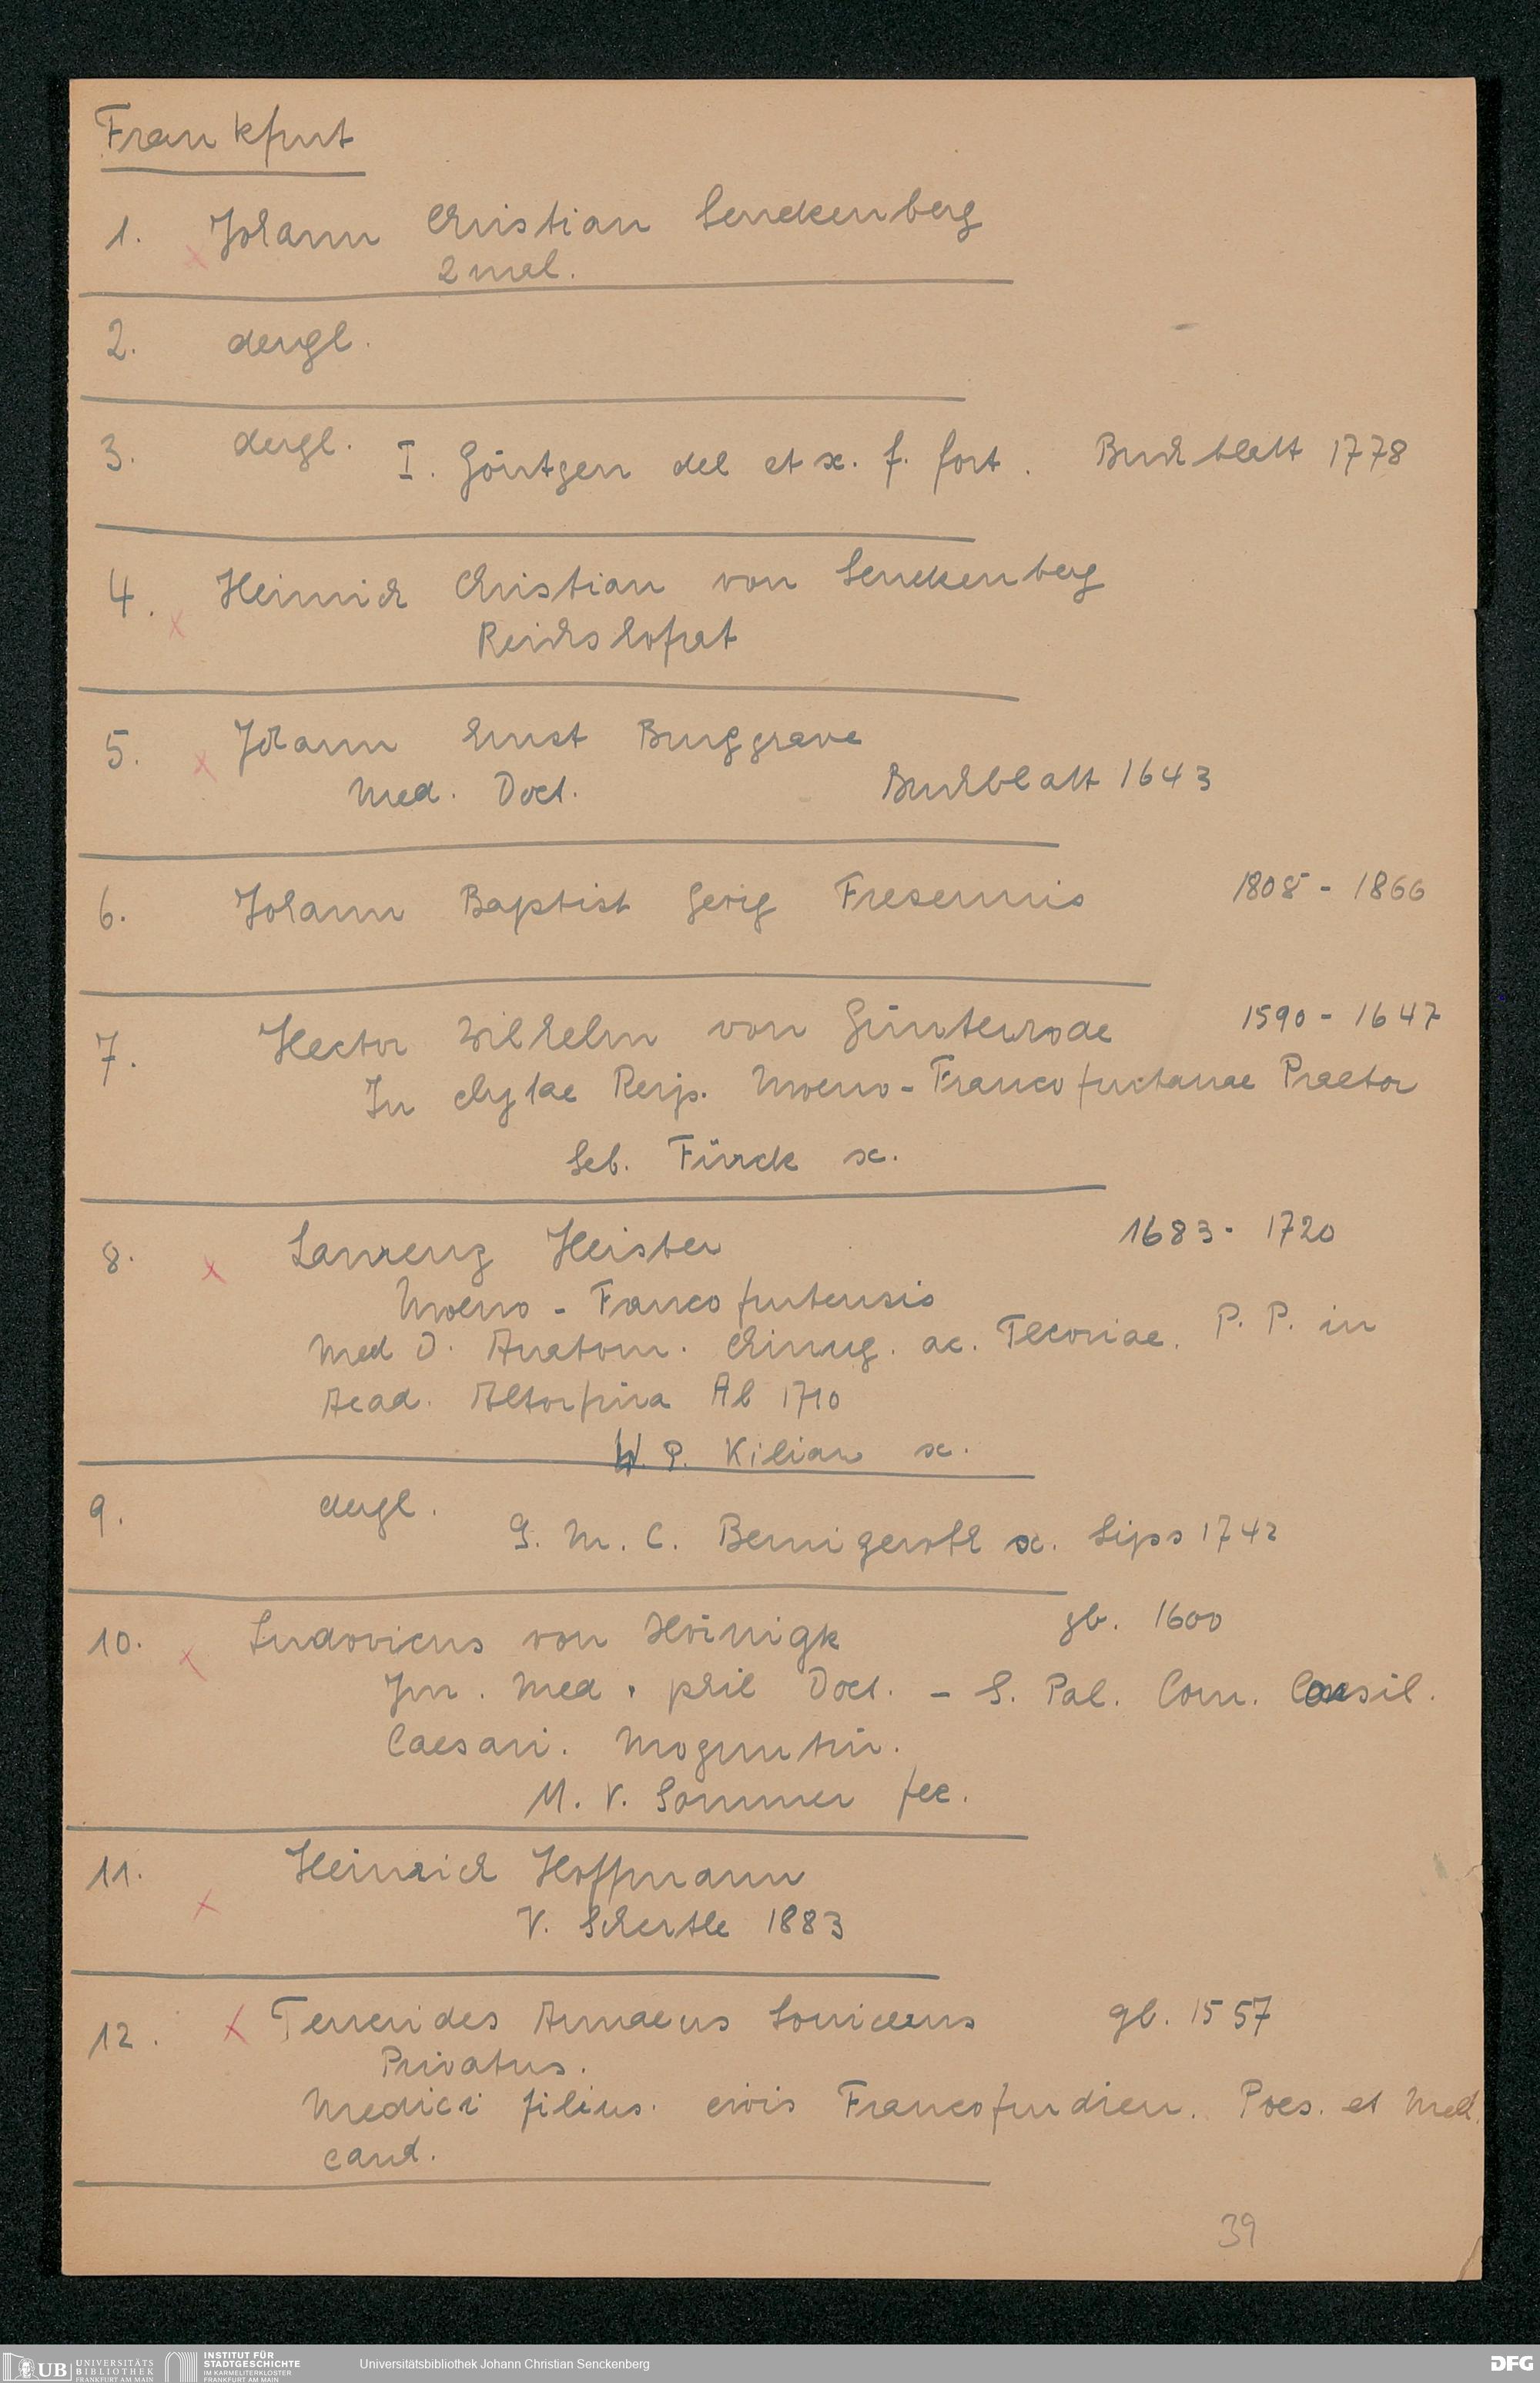 Frankfurt
1. Johann Christian Senckenberg
2 mal.
2. dergl.
3. dergl. I. Göntgen del et sc. f. fort. Buchblatt 1778
4. Heinrich Christian von Senckenberg
Reichshofrat
5. Johann Ernst Burggrave
Med. Doct. Buchblatt 1643
6. Johann Baptist Georg Fresenius 1808 - 1866
7. Hector Wilhelm von Günterrode 1590 - 1647
In clytae Reip. Moeno-Francofurtanae Praetor
Seb. Fürck sc.
8. Laurenz Heister 1683 - 1720
Moeno - Francofurtensis
Med D. Anatom. Chirurg. ac. Theoriae. P. P. in
Acad. Altorfina Ab 1710
W. P. Kilian sc.
9. dergl. G. M. C. Bernigeroth sc. Lips 1742
10. Ludovicus von Hörnigk gb. 1600
Jur. Med. phil Doct. - S. Pal. Com. Consil.
Caesari. Moguntin.
M. V. Sommer fec.
11. Heinrich Hoffmann
V. Schertle 1883
12. Annaeus Lonicerus gb. 1557
Privatus.
Medici filius. civis Francofurdien. Poes. et Med.
cand.
39
UB UNIVERSITÄTS
BIBLIOTHEK
FRANKFURT AM MAIN
INSTITUT FÜR
STADTGESCHICHTE
IM KARMELITERKLOSTER
FRANKFURT AM MAIN
Universitätsbibliothek Johann Christian Senckenberg
DFG